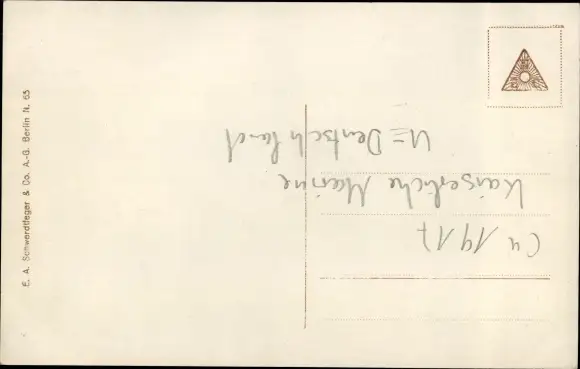 E. A. Schwerdtfeger & Co. A.-G. Berlin N. 65
Ca 1917
Kaiserliche Marine
U=Deutschland